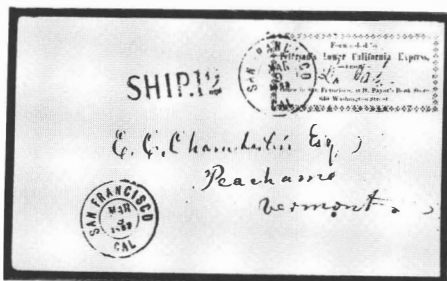 SHIP.12
SAN FRANCISCO
CAL
Forwarded by
Peterson's Lower California Express,
La Paz
Office in San Francisco, at H. Payot's Book Store
640 Washington Street
E. C. Chamberlin Esq
Peacham
Vermont.
SAN FRANCISCO
MAR
CAL